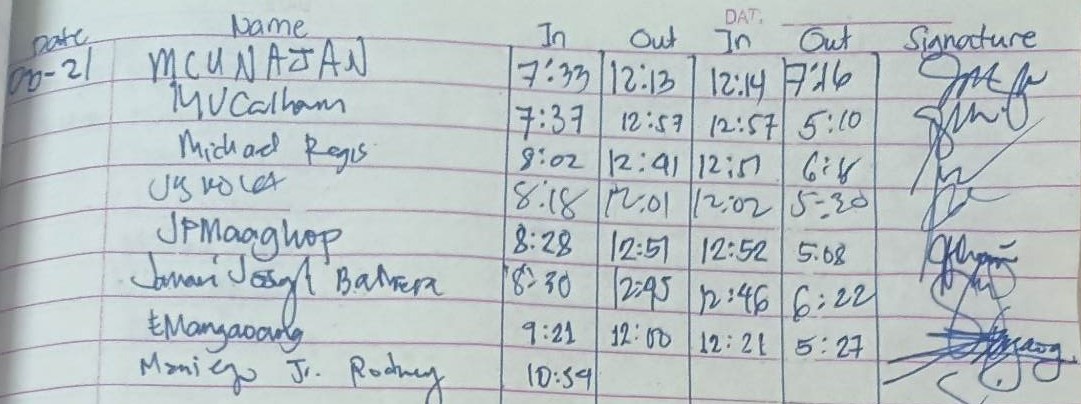 DAT.
Date Name In Out In Out Signature
00-21 MCUNAJAN 7:33 12:13 12:14 7:16
MVCalham 7:37 12:57 12:57 5:10
Michael Regis 8:02 12:41 12:51
8:18 12:01 12:02 5:30
JPMaaghop 8:28 12:51 12:52 5:08
Joseph Barrera 8:30 12:45 12:46 6:22
EMangaoang 9:21 12:00 12:21 5:27
Maniego Jr. Rodney 10:59